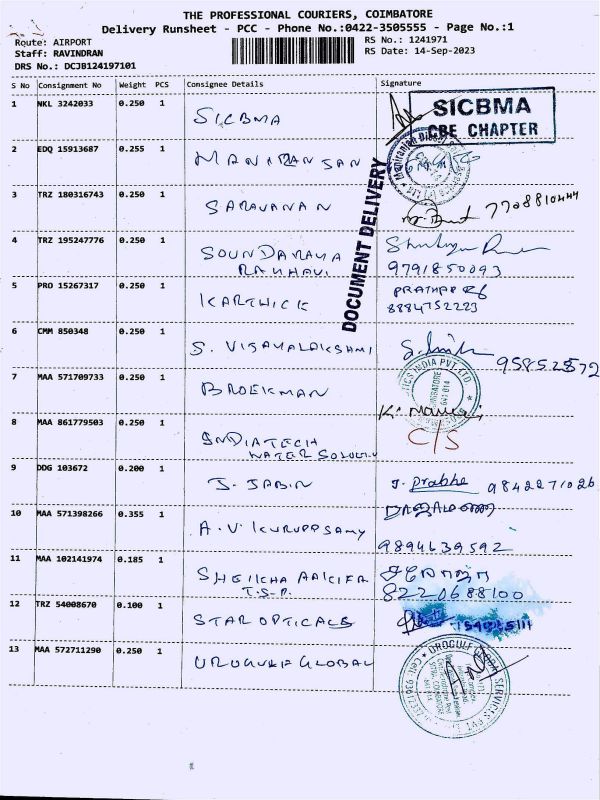 THE PROFESSIONAL COURIERS, COIMBATORE
Delivery Runsheet - PCC - Phone No.:0422-3505555 - Page No.:1
Route: AIRPORT
Staff: RAVINDRAN
DRS No.: DCJB124197101
RS No.: 1241971
RS Date: 14-Sep-2023
S No Consignment No Weight PCS Consignee Details Signature
1 NKL 3242033 0.250 1 SICBMA
SICBMA
CBE CHAPTER
2 EDQ 15913687 0.255 1
DOCUMENT DELIVERY
3 TRZ 180316743 0.250 1 SARAVANAN 7708810444
4 TRZ 195247776 0.250 1 SOUNDARAYA
RAKHAVI 9791850093
5 PRO 15267317 0.250 1 KARTHICK PRATHAP
8884752223
6 CMM 850348 0.250 1 S. VIJAYALAKSHMI
7 MAA 571709733 0.250 1 BROEKMAN
8 MAA 861779503 0.250 1 INDIATECH
WATER SOLUTI C/S
9 DDG 103672 0.200 1 J. JABIN J. Prabhe 9842271026
10 MAA 571398266 0.355 1 A.V KURUPPSAMY
9894639592
11 MAA 102141974 0.185 1
T.S.P. 8220688100
12 TRZ 54008670 0.100 1 STAR OPTICALS
13 MAA 572711290 0.250 1 UROGULF GLOBAL